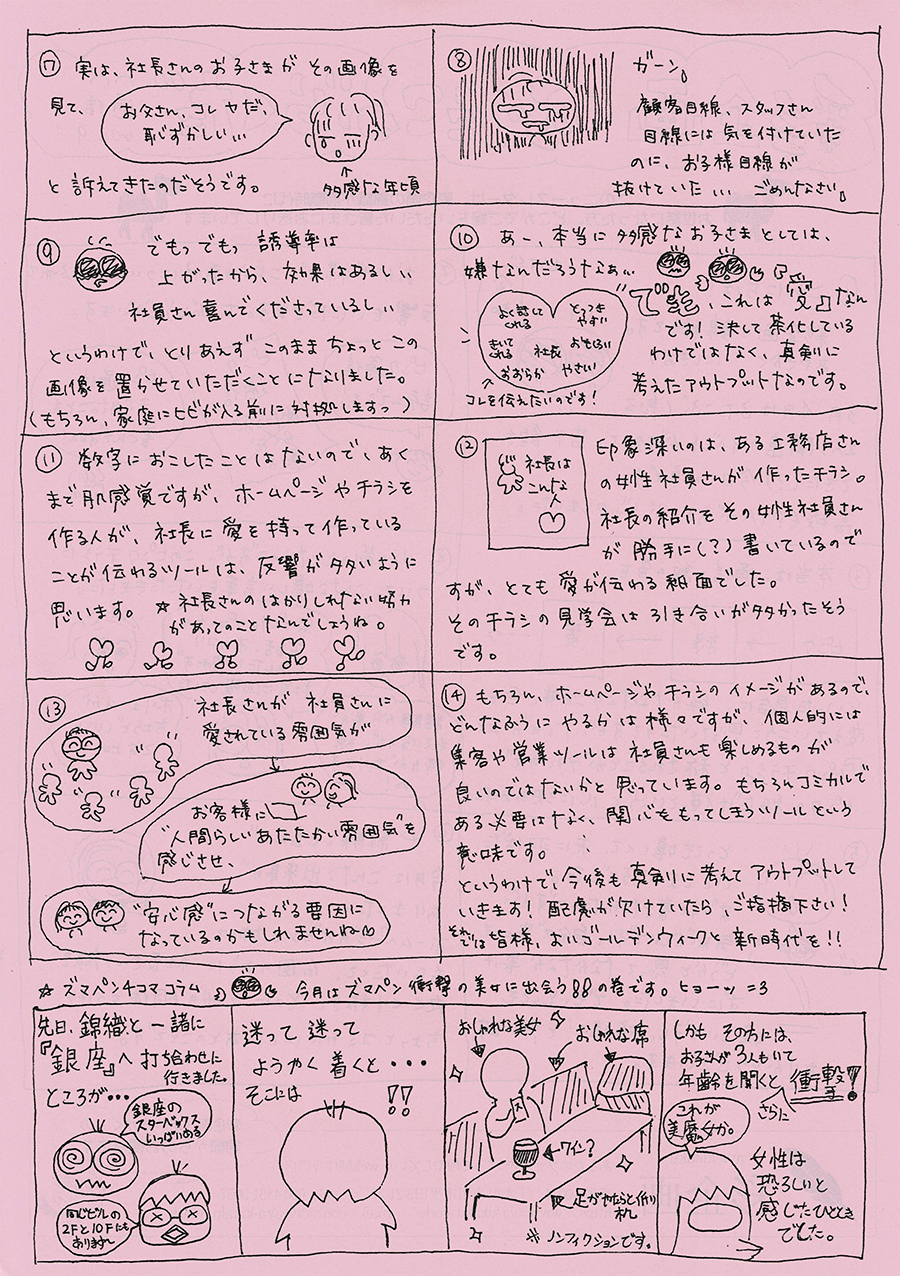 ⑦ 実は、社長さんのお子さまが その画像を
見て、
お父さん、コレ ヤだ、
恥ずかしい…
↑
多感な年頃
と 訴えてきたのだそうです。
⑧
ガーン。
顧客目線、スタッフさん
目線には 気を付けていた
のに、お子様目線が
抜けていた… ごめんなさい。
⑨
でもっ でもっ 誘導率は
上がったから、効果はあるし、
社員さん 喜んでくださっているし、
というわけで、とりあえず このまま ちょっと この
画像を 置かせていただくことに なりました。
(もちろん、家庭にヒビが入る前に 対処しますっ )
⑩ あー、本当に 多感な お子さま としては、
嫌なんだろうなぁ…
で"も、これは『愛』なん
です! 決して 茶化している
わけではなく、真剣に
考えたアウトプットなのです。
よく話して
くれる
とっつき
やすい
きいて
くれる
社長
おもしろい
おおらか
やさしい
↑
コレを伝えたいのです!
⑪ 数字に おこしたことは ないので、あく
まで 肌感覚ですが、ホームページ や チラシを
作る人が、社長に 愛を 持って 作っている
ことが 伝わるツールは、反響が 多いように
思います。 ☆ 社長さんの はかりしれない 努力
があってのこと なんでしょうね。
⑫
社長は
こんな
人
印象深いのは、ある工務店さん
の女性社員さんが 作ったチラシ。
社長の紹介を その女性社員さん
が 勝手に(?) 書いているので
すが、とても 愛が伝わる 紙面でした。
そのチラシの 見学会は 引き合いが多かったそう
です。
⑬
社長さんが 社員さんに
愛されている 雰囲気が
お客様に
"人間らしい あたたかい 雰囲気"を
感じさせ、
"安心感"に つながる 要因に
なっているのかもしれませんね
⑭ もちろん、ホームページや チラシの イメージが あるので、
どんなふうに やるかは 様々ですが、個人的には
集客や営業ツールは 社員さんも 楽しめるものが
良いのではないかと 思っています。もちろんコミカルで
ある必要はなく、関心をもってしまうツールという
意味です。
というわけで、今後も 真剣に 考えて アウトプットして
いきます! 配慮が欠けていたら、ご指摘下さい!
それでは 皆様、よいゴールデンウィークと 新時代を!!
☆ ズマペン4コマ コラム
今月は ズマペン 衝撃の美女に出会う の巻です。ヒョーッ =3
先日、錦織と 一緒に
『銀座』へ 打ち合わせに
行きました。
ところが…
銀座の
スターバックス
いっぱいある
同じビルの
2Fと10Fにも
あります〜
迷って 迷って
ようやく 着くと・・・
そこには
!!
おしゃれな美女
おしゃれな席
←ワイン?
足がやたらと低い
机
※ ノンフィクションです。
しかも その方には、
お子さんが 3人もいて
年齢を 聞くと、さらに
衝撃!
これが
美魔女か。
女性は
恐ろしいと
感じたひととき
でした。